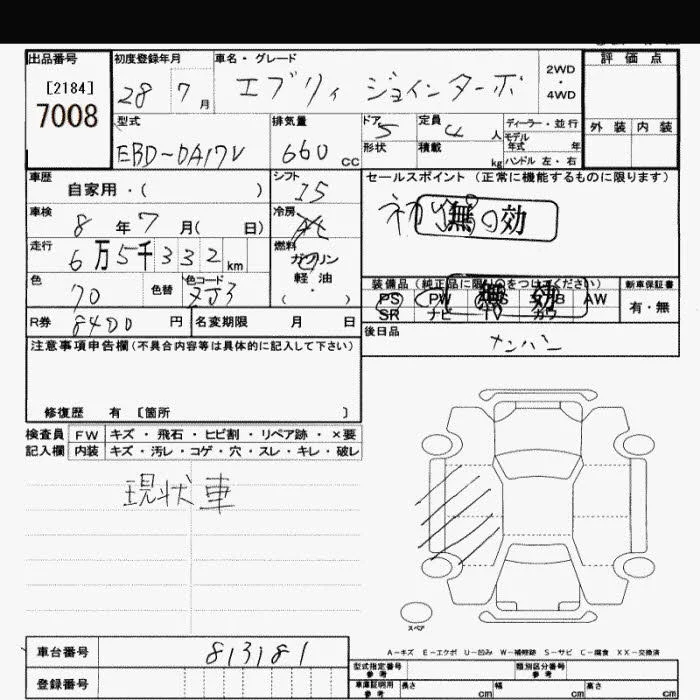 出品番号
[2184]
7008
初度登録年月
28 7月
車名・グレード
エブリィ ジョインターボ
2WD
・
4WD
評価点
外装 内装
型式
EBD-DA17V
排気量
660 cc
ドア 5
形状
定員 4 人
積載 kg
ディーラー・並行
モデル年式 年
ハンドル 左・右
車歴
自家用・( )
シフト
I5
車検
8年7月( 日)
冷房
走行
6万5千332km
燃料
ガソリン
軽油
( ・ )
色
70
色替
色コード
R券 8400円
名変期限 月 日
セールスポイント (正常に機能するものに限ります)
無効
装備品
無効
PS PW AW
SR ナビ カワ
新車保証書
有・無
後日品
ナンバー
注意事項申告欄(不具合内容等は具体的に記入して下さい)
修復歴 有 〔箇所 〕
検査員 FW キズ・飛石・ヒビ割・リペア跡・×要
記入欄 内装 キズ・汚レ・コゲ・穴・スレ・キレ・破レ
現状車
スペア
A-キズ E-エクボ U-凹み W-補修跡 S-サビ C-腐食 XX-交換済
車台番号 813181
登録番号
型式指定番号 参考
類別区分番号 参考
車庫証明用 参考 長さ cm 幅 cm 高さ cm